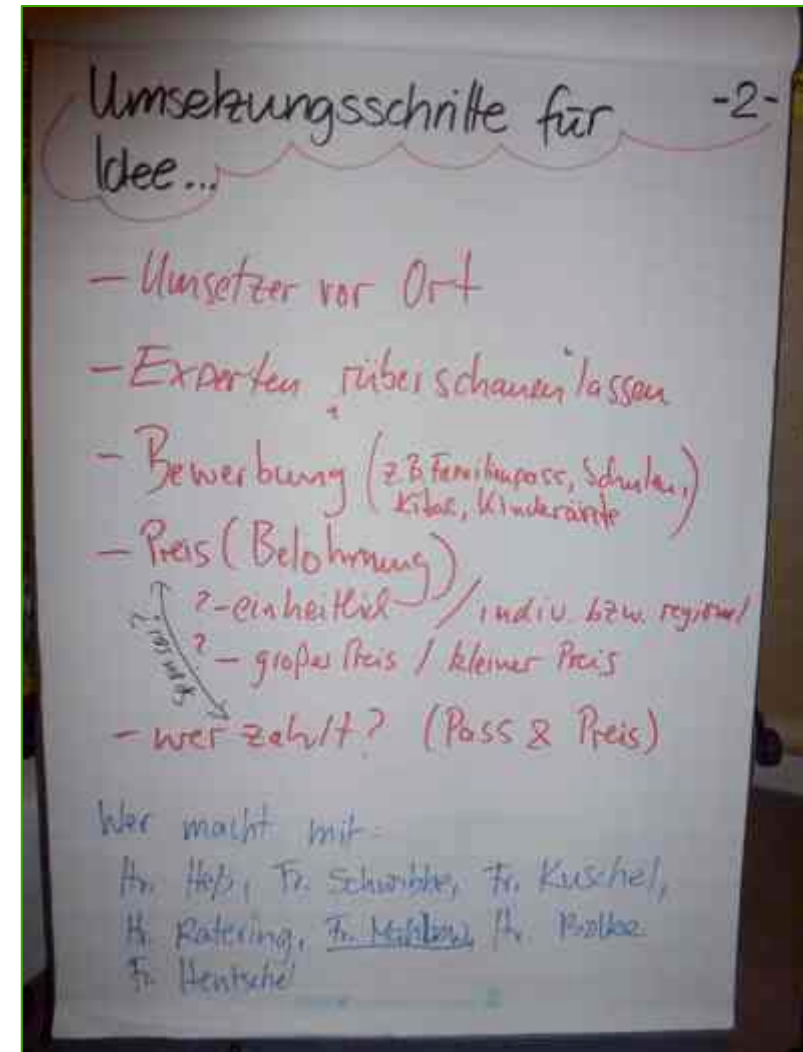 Umsetzungsschritte für -2-
Idee...
- Umsetzer vor Ort
- Experten rüber schauen lassen
- Bewerbung (z B Familienpass, Schulen,
Kitas, Kinderärzte)
- Preis (Belohnung)
? - einheitlich / indiv. bzw. regional
? - großer Preis / kleiner Preis
Sponsor?
- wer zahlt? (Pass & Preis)
Wer macht mit:
Hr. Heß, Fr. Schwibbe, Fr. Kuschel,
Hr. Ratering, Fr. Hr.
Fr. Hentschel